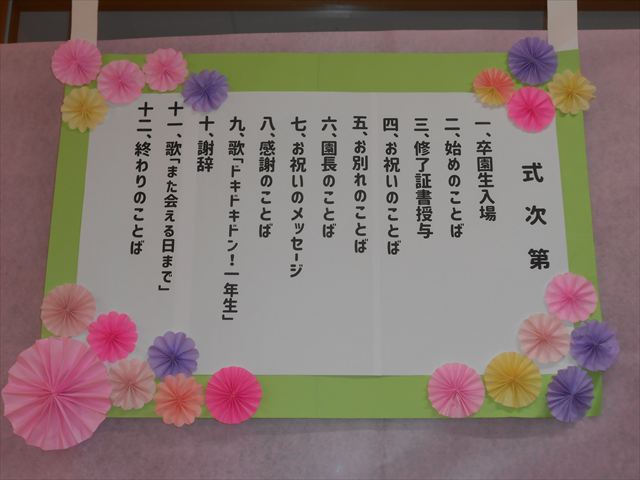 式次第
一、卒園生入場
二、始めのことば
三、修了証書授与
四、お祝いのことば
五、お別れのことば
六、園長のことば
七、お祝いのメッセージ
八、感謝のことば
九、歌「ドキドキドン!一年生」
十、謝辞
十一、歌「また会える日まで」
十二、終わりのことば